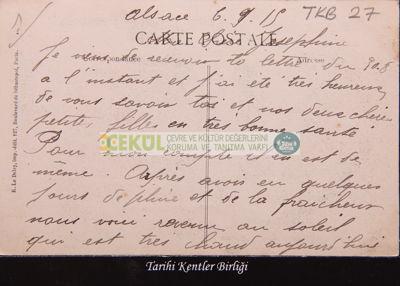 Alsace 6.9.15
TKB 27
CARTE POSTALE
Josephine
Correspondance
Adresse
Je viens de recevoir ta lettre du 30.8
à l'instant et j'ai été très heureux
de vous savoir toi et nos deux chères
petites filles en très bonne santé
ÇEKÜL ÇEVRE VE KÜLTÜR DEĞERLERİNİ
KORUMA VE TANITMA VAKFI
Pour mon compte il en est de
même. Après avoir eu quelques
jours de pluie et de la fraîcheur
nous voici revenu au soleil
qui est très chaud aujourd'hui
E. Le Deley, imp.-édit., 127, Boulevard de Sébastopol, Paris.
Tarihi Kentler Birliği